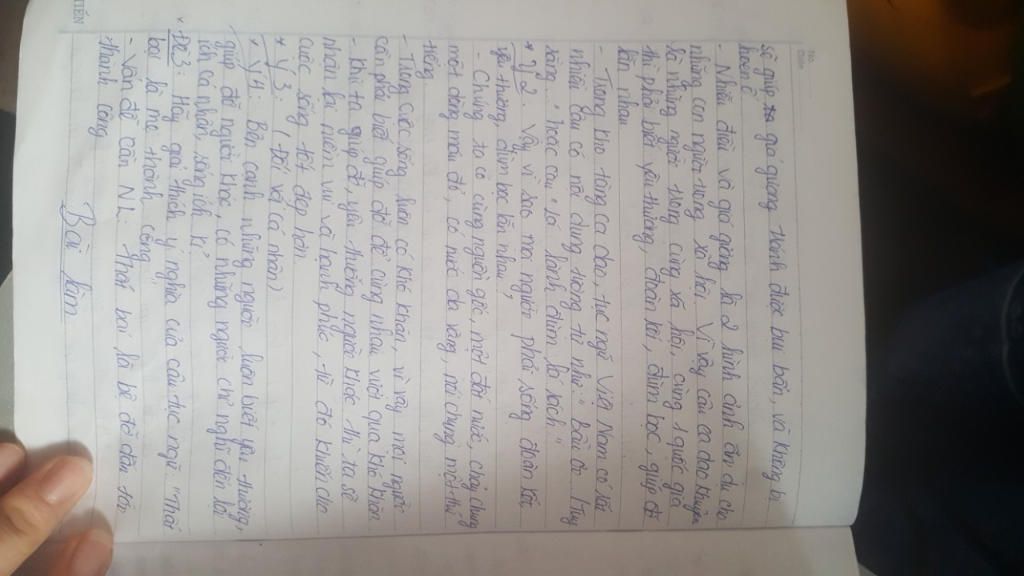 sẽ giúp giá gương tránh được bụi bẩn, và không bị
hoen ố
- Nhiễu điều và giá gương là 2 hình ảnh ẩn dụ cho
những con người trong xã hội. Vì vậy câu ca dao khuyên
là những người trong cùng xã hội, cùng 1 quốc gia
thì phải biết yêu thương, đoàn kết, đùm bọc, giúp đỡ
lẫn nhau
- Trong kho tàng ca dao, tục ngữ Việt Nam có rất
nhiều câu có nội dung tương tự như: "Bầu ơi
rằng", hoặc câu "lá lành đùm lá rách"
* Ý 2. Vậy vì sao mọi người phải sống đoàn kết,
yêu thương, đùm bọc lẫn nhau?
- Chúng ta có cùng nguồn gốc, một đất nước, chảy chung
một dòng máu đỏ, có nước da vàng, nói chung một thứ
tiếng.
- Trong cuộc sống luôn có khó khăn, vì vậy mọi người
cần phải biết giúp đỡ để cùng nhau vượt qua khó khăn
- Khi ta giúp đỡ, yêu thương người khác thì ta sẽ
nhận lại niềm vui và hạnh phúc, từ đó khiến cho
cuộc sống tốt đẹp hơn.
* Ý 3: (đối với cá nhân)
* Ý 4: Bên cạnh những người luôn biết yêu thương,
giúp đỡ người khác, có những người chỉ nghĩ đến lợi
ích cá nhân, sống ích kỉ.
Đề 3: Hãy giải thích ý nghĩa của câu tục ngữ "Thất
bại là mẹ thành công"
- Vấn đề cần NL: Thất bại là bệ đỡ dẫn tới
thành công
Bài làm